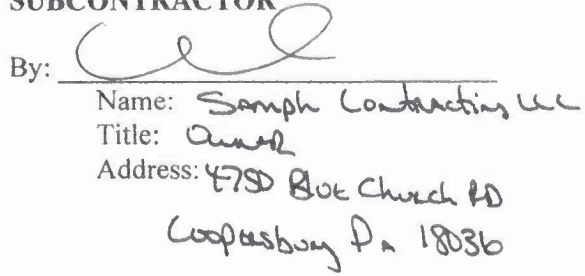 SUBCONTRACTOR
By:
Name: Contracting LLC
Title: Owner
Address: 4750 Blue Church RD
Coopersburg PA 18036